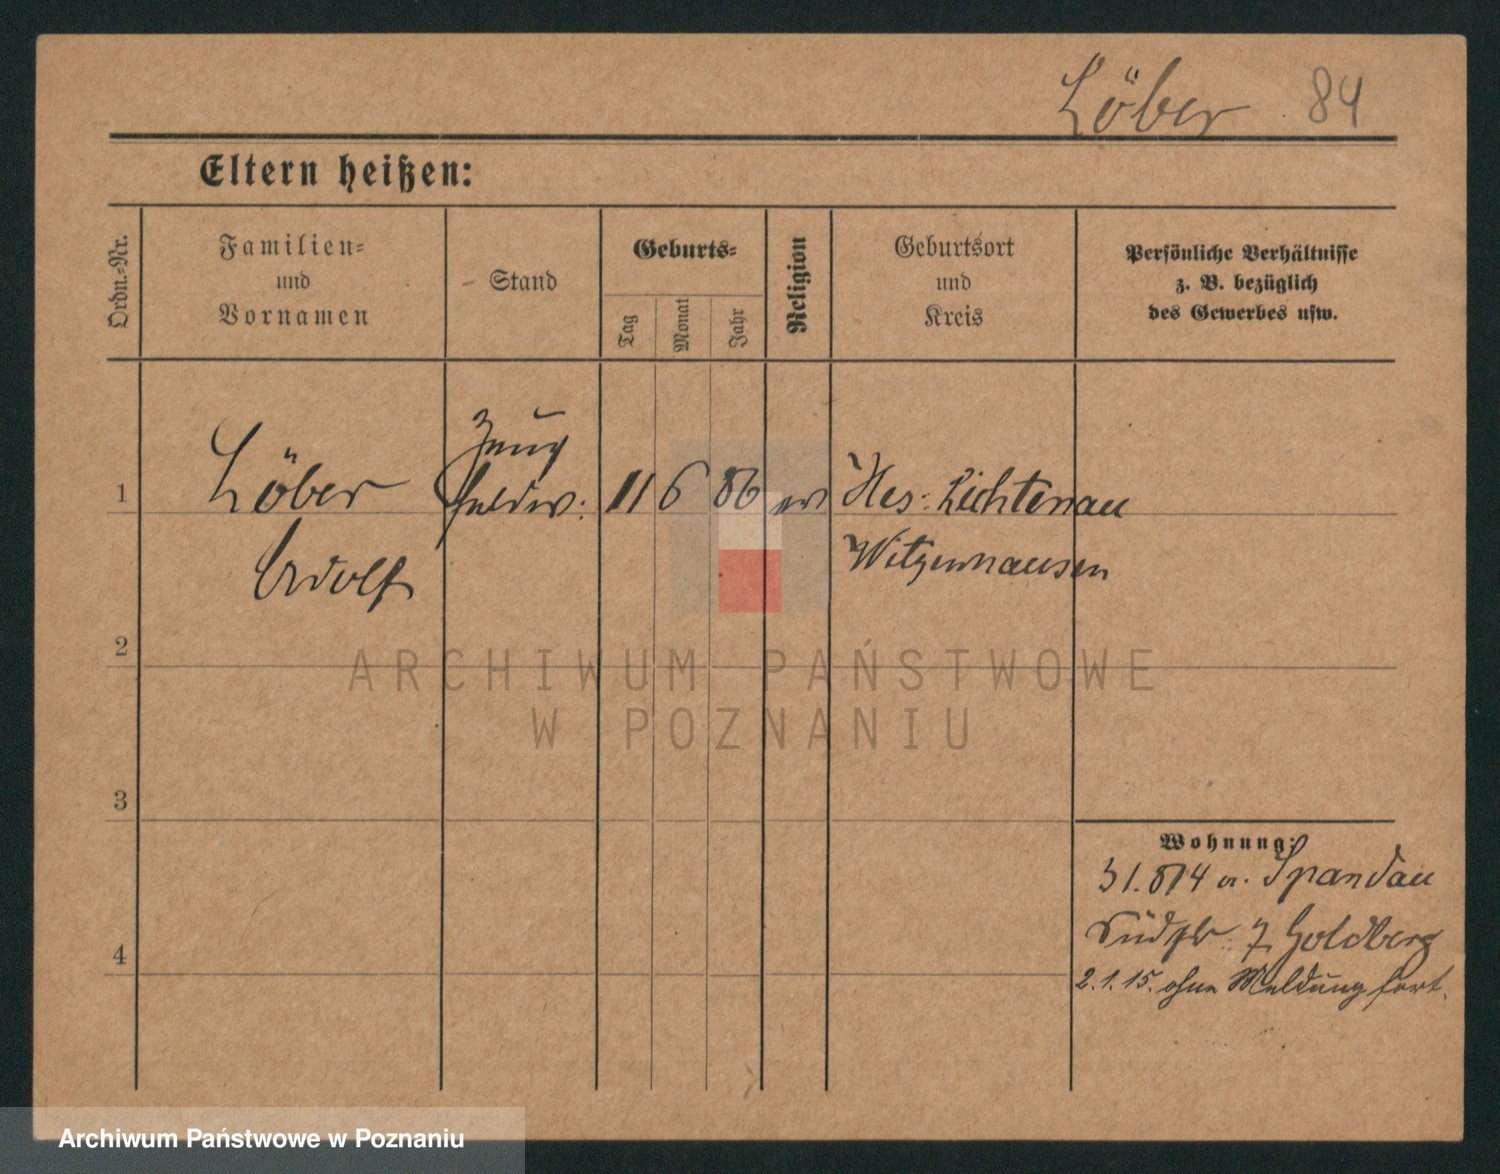 Löber 84
Eltern heißen:
Ordn.=Nr.
Familien=
und
Vornamen
Stand
Geburts=
Tag
Monat
Jahr
Religion
Geburtsort
und
Kreis
Persönliche Verhältnisse
z. B. bezüglich
des Gewerbes usw.
Zeug
1 Löber feldw: 11 6 86 ev Hes: Lichtenau
Adolf Witzenhausen
2
ARCHIWUM PAŃSTWOWE
W POZNANIU
3
Wohnung:
31.8 14 v. Spandau
Südstr: 7 Goldberg
4
2.1.15. ohne Meldung fort.
Archiwum Państwowe w Poznaniu